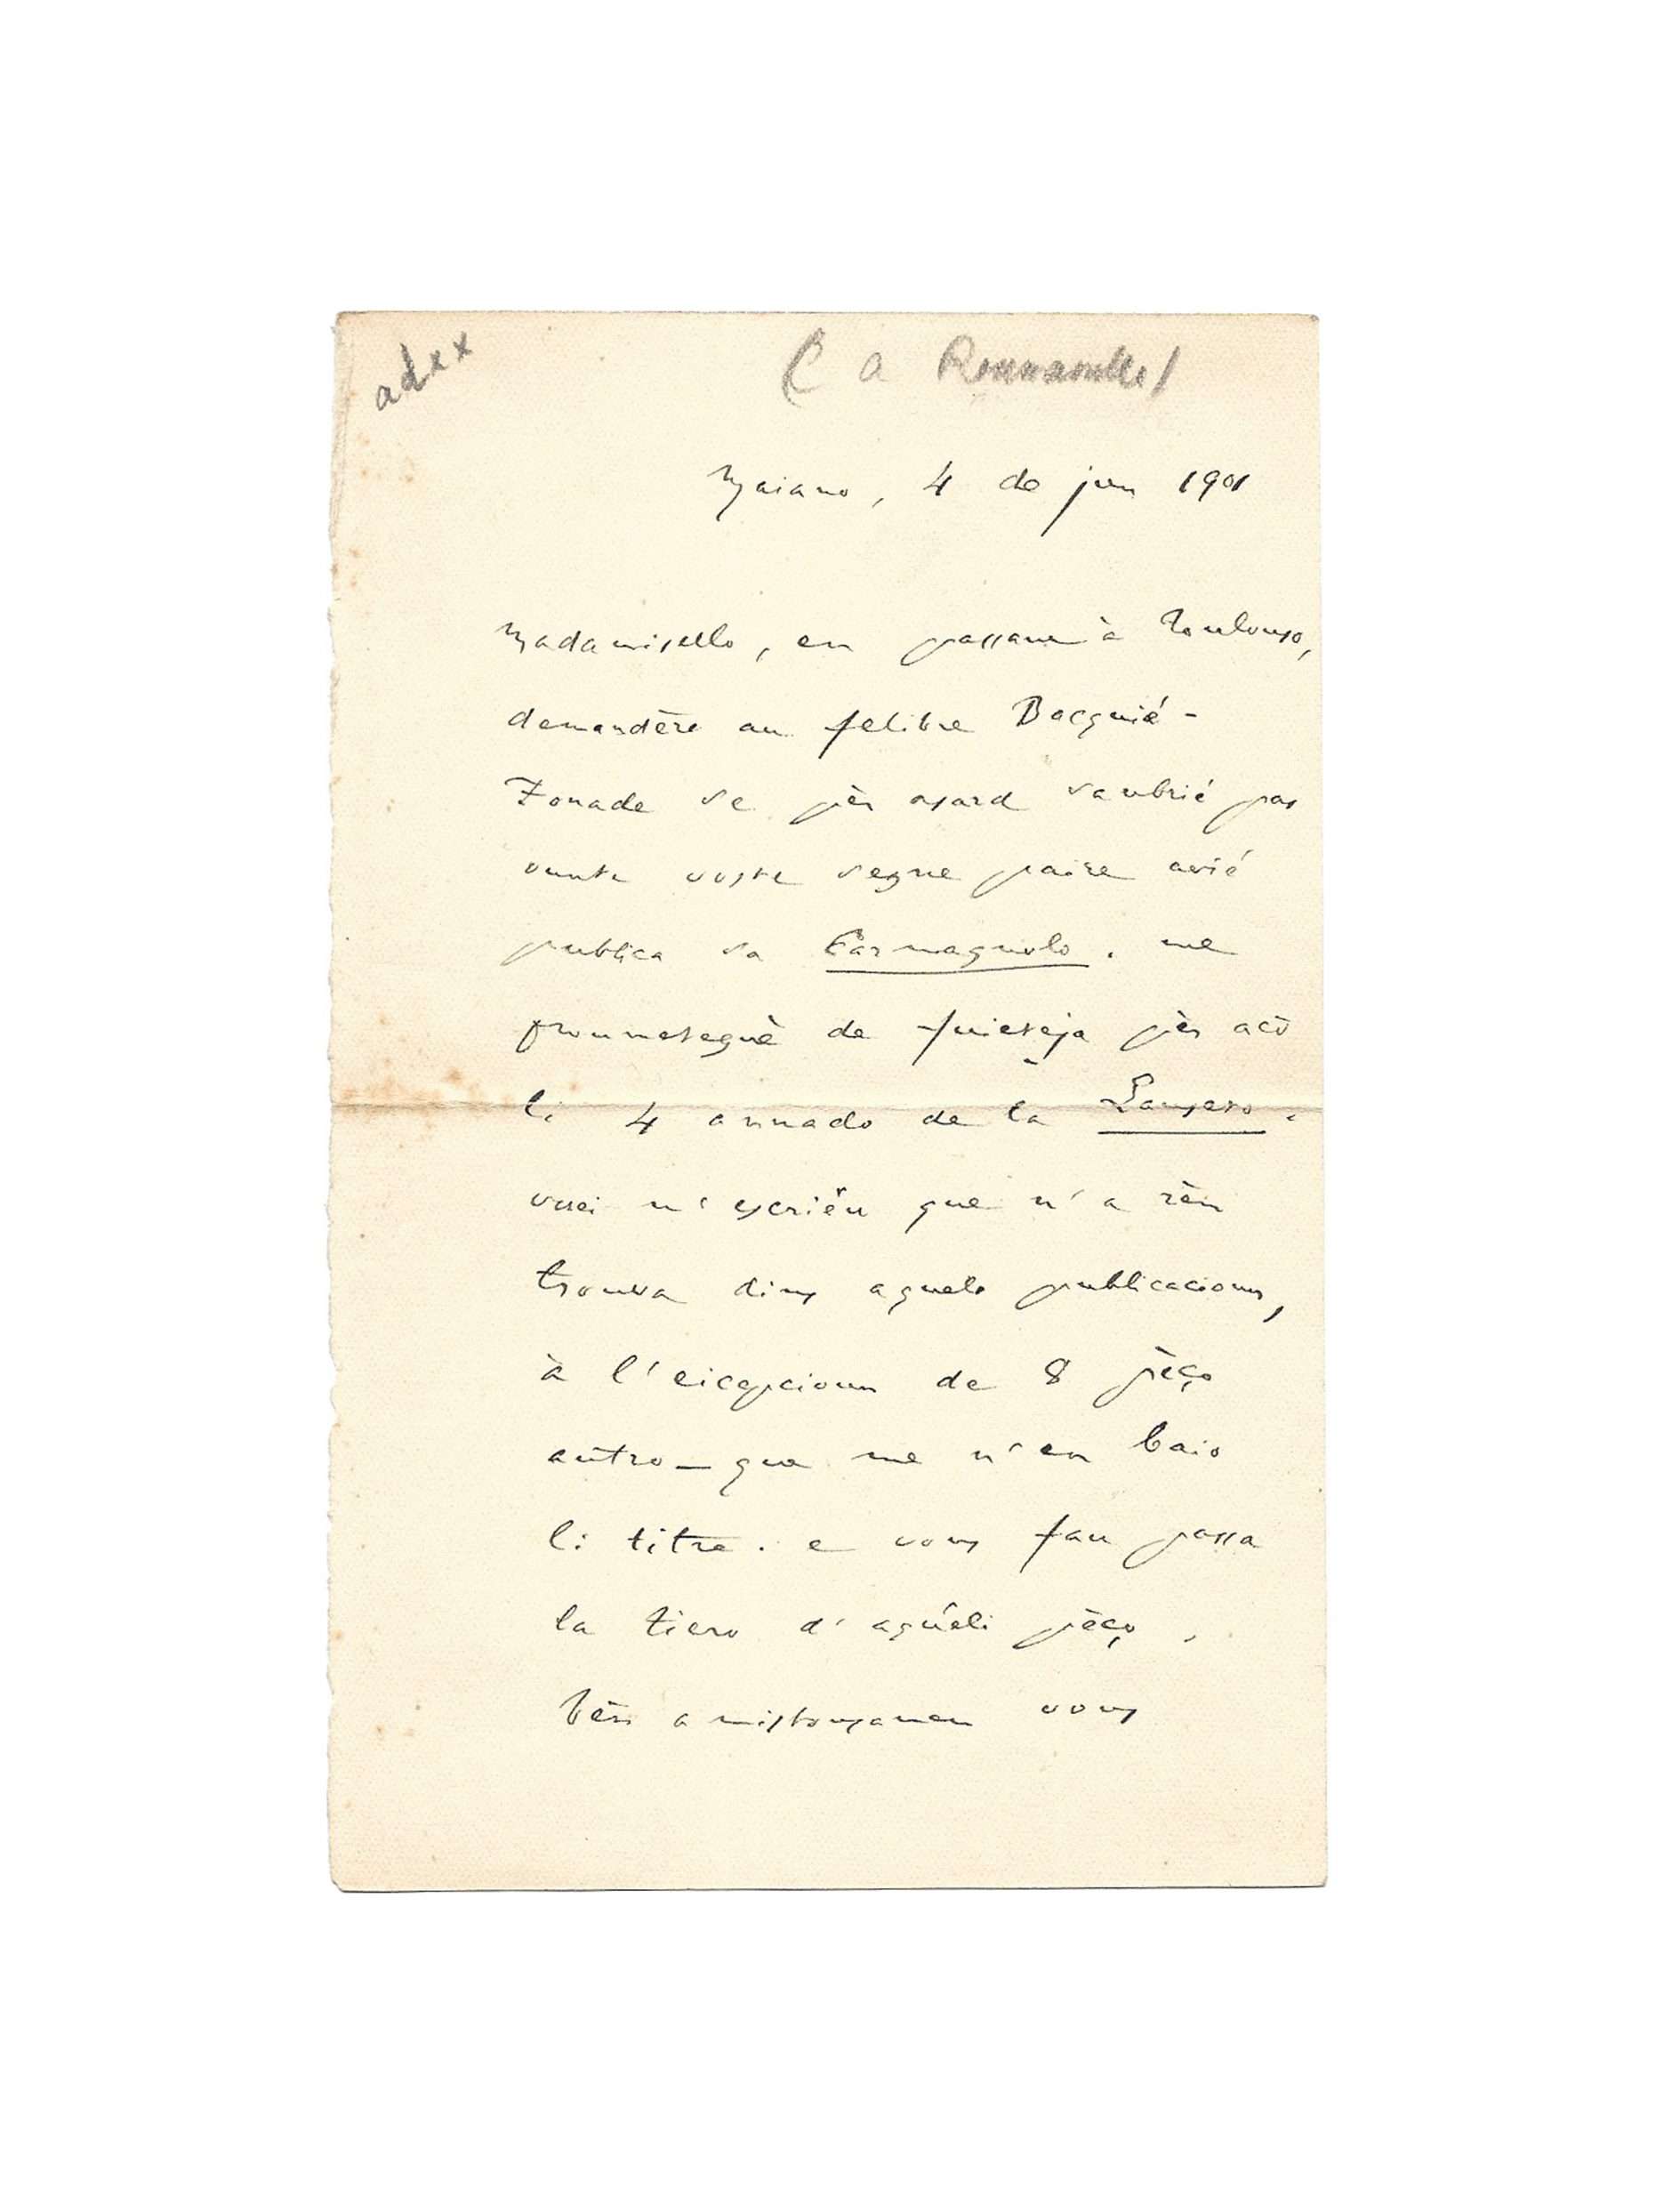 adxx
( a Roumanille)
Maiano, 4 de jun 1901
Madamisello, en passant à Toulouso,
demandère au felibre Bacquié-
Fonade se pèr asard saubrié pas
ounte voste segne paire avié
publica sa Carmagnolo. me
proumeteguè de fuieteja pèr acò
li 4 annado de la Lauseto.
vuei m'escriéu que n'a rèn
trouva dins aquelo publicacioun,
à l'eicepcioun de 8 pèço
autro — que me n'en baio
li titre. e vous fau passa
la tiero d'aquéli pèço.
bèn amistousamen vous